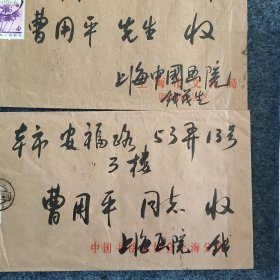 曹用平 先生 收
上海中国画院
本市 安福路 53弄13号
3楼
曹用平 同志 收
上海画院 钱